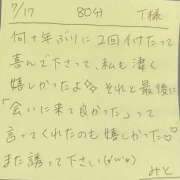 7/17 80分 T様
何十年ぶりに2回イけたって
喜んで下さって、私も凄く
嬉しかったよ♡ それと最後に
「会いに来て良かった」って
言ってくれたのも嬉しかった♡
また誘って下さい(๑'ω'๑)
みと